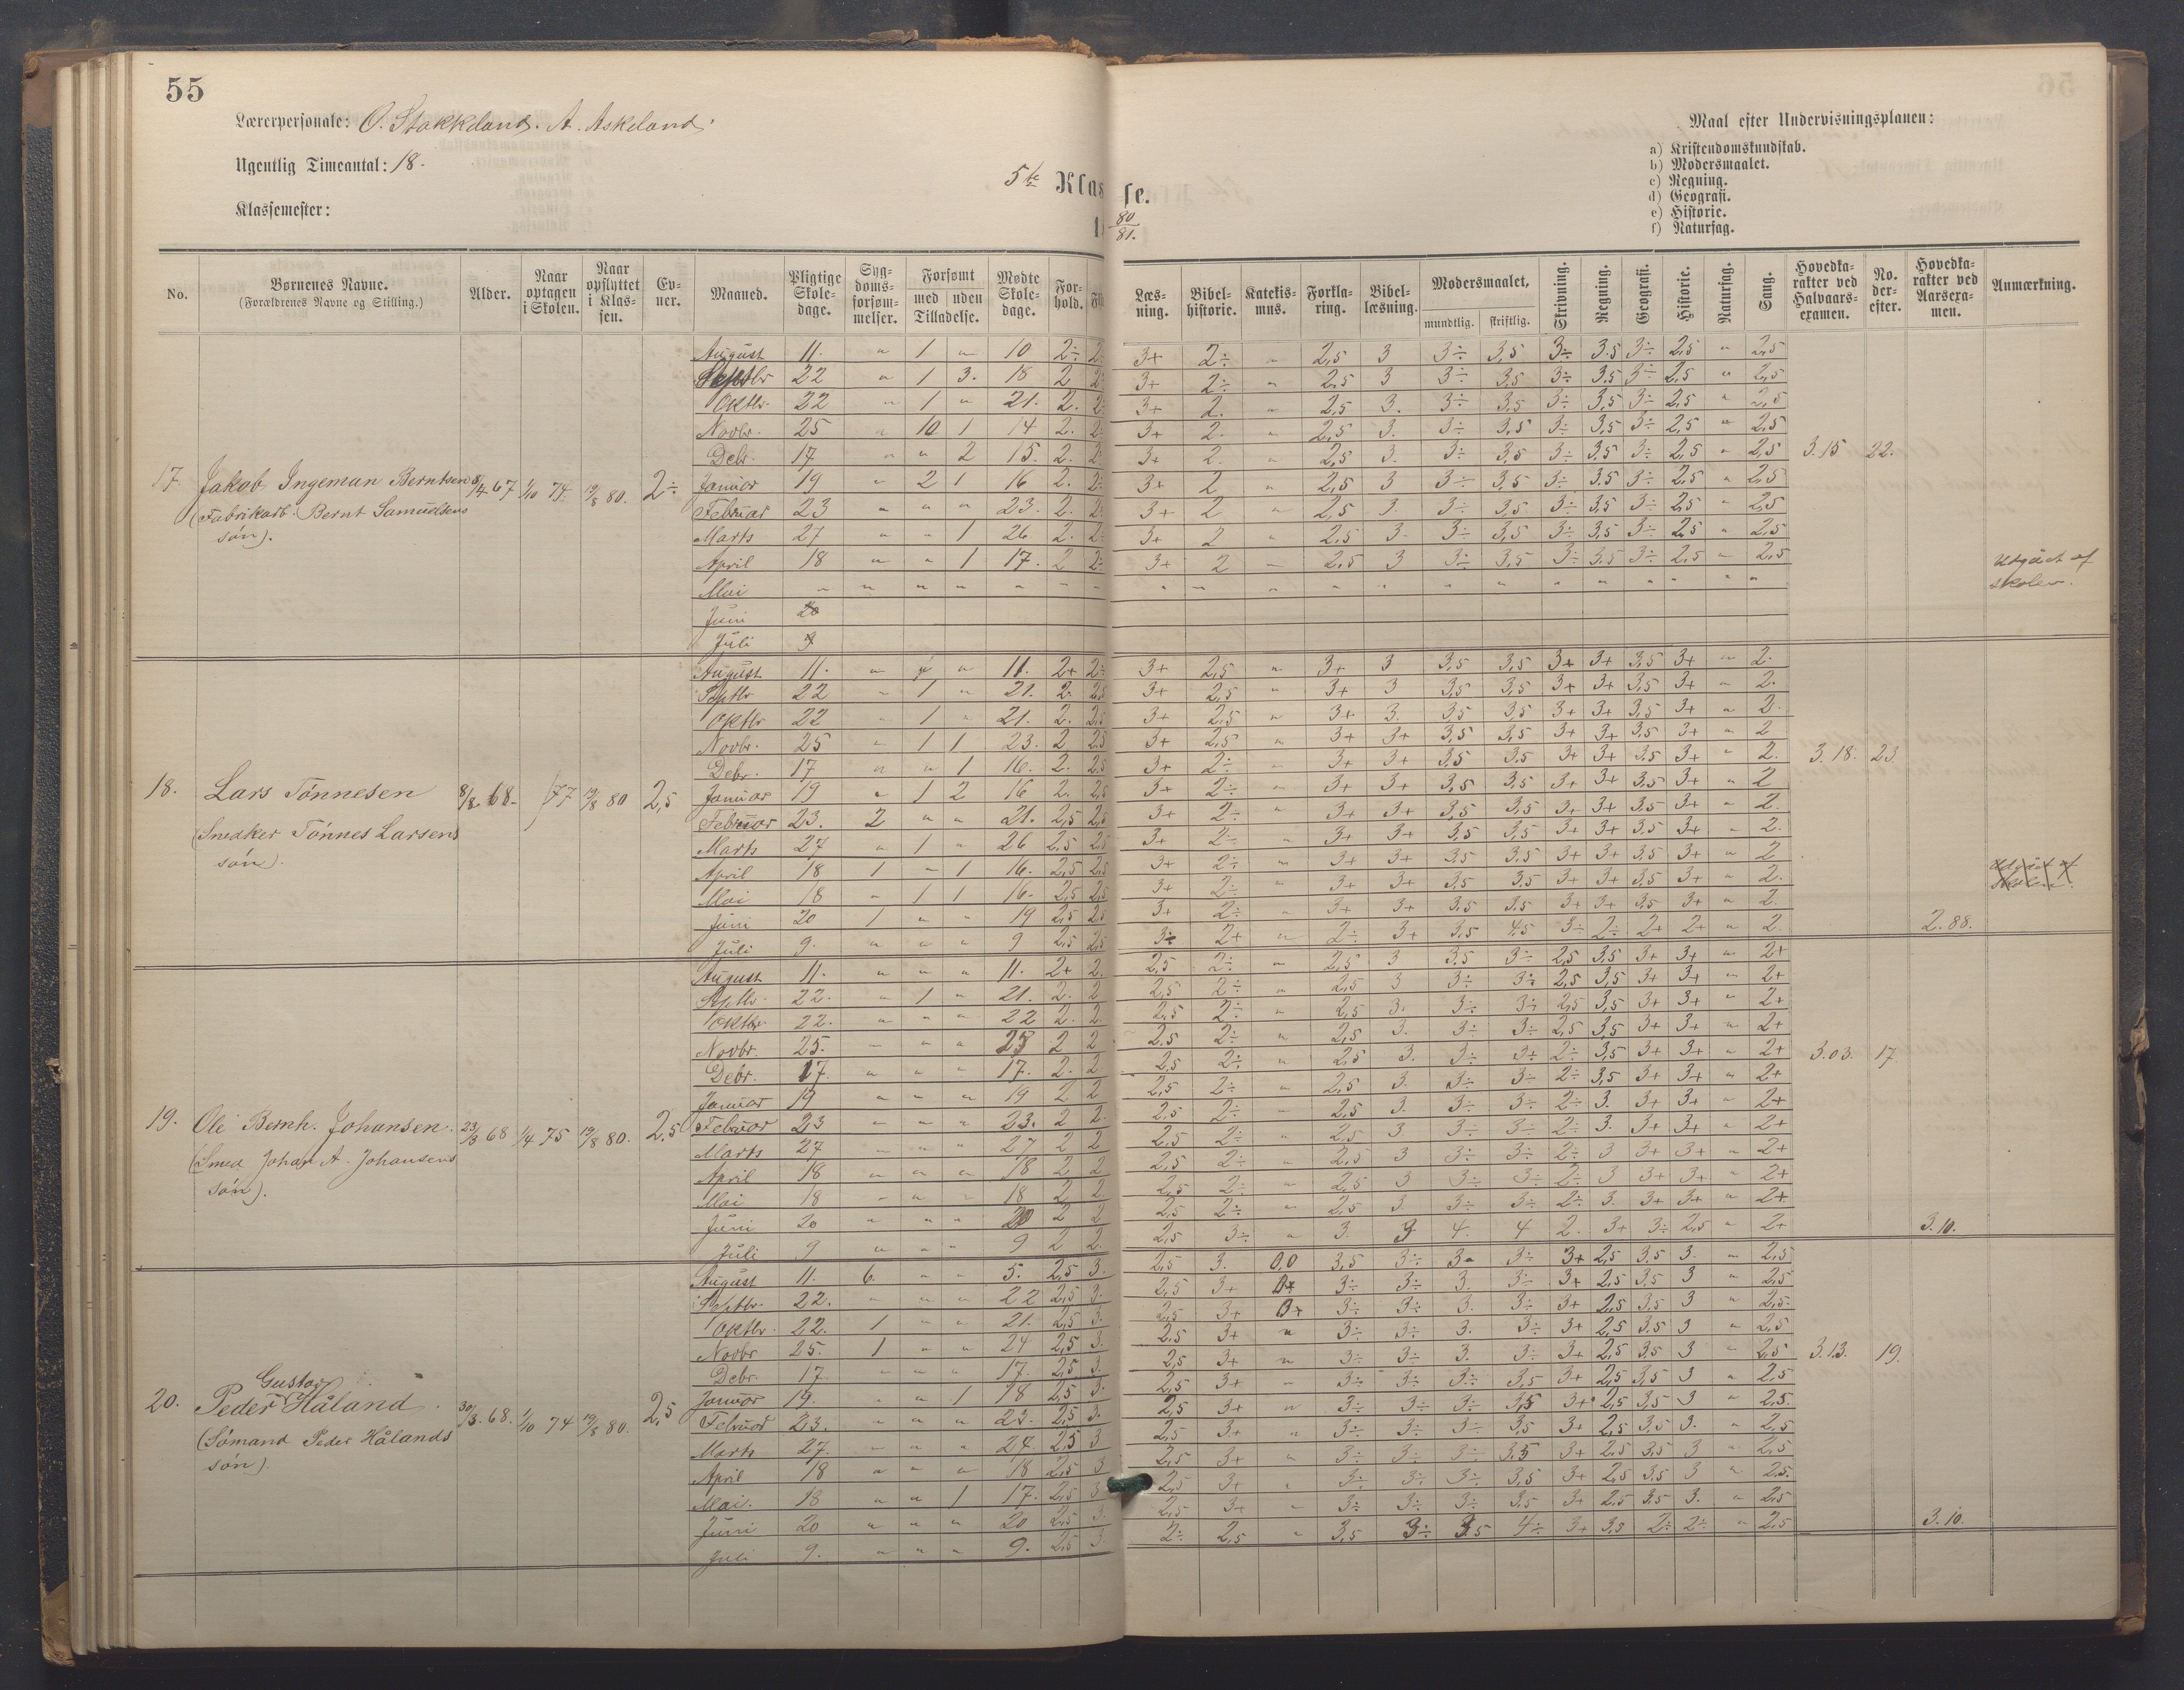 55
Lærerpersonale: O. Stakkeland. A. Askeland.
Ugentlig Timeantal: 18.
Klassemester:
5te Klasse.
80/81.
Maal efter Undervisningsplanen:
a) Kristendomskundskab.
b) Modersmaalet.
c) Regning.
d) Geografi.
e) Historie.
f) Naturfag.
No. Børnenes Navne. (Forældrenes Navne og Stilling.) Alder. Naar optagen i Skolen. Naar opflyttet i Klassen. Evner. Maaned. Pligtige Skoledage. Sygdomsforsømmelser. Forsømt med uden Tilladelse. Mødte Skoledage. Forhold. Læsning. Bibelhistorie. Katekismus. Forklaring. Bibellæsning. Modersmaalet, mundtlig. skriftlig. Skrivning. Regning. Geografi. Historie. Naturfag. Sang. Hovedkarakter ved Halvaarsexamen. No. derefter. Hovedkarakter ved Aarsexamen. Anmærkning.
17. Jakob Ingeman Berntsen 67 1/10 74. 19/8 80. 2÷
(Fabrikarb. Bernt Samuelsens
søn).
August 11. " 1 " 10 2÷ 3+ 2÷ " 2,5 3 3÷ 3,5 3÷ 3.5 3÷ 2,5 " 2,5
Septbr 22 " 1 3. 18 2 3+ 2÷ " 2,5 3 3÷ 3,5 3÷ 3,5 3÷ 2,5 " 2,5
Oktbr. 22 " 1 " 21. 2. 3+ 2. " 2,5 3. 3÷ 3,5 3÷ 3,5 3÷ 2,5 " 2,5
Novbr. 25 " 10 1 14 2. 3+ 2. " 2,5 3. 3÷ 3,5 3÷ 3,5 3÷ 2,5 " 2,5
Debr. 17 " " 2 15. 2. 3+ 2. " 2,5 3. 3÷ 3,5 3÷ 3,5 3÷ 2,5 " 2,5 3.15 22.
Januar 19 " 2 1 16 2. 3+ 2 " 2,5 3 3÷ 3,5 3÷ 3.5 3÷ 2,5 " 2,5
Februar 23 " " " 23. 2. 3+ 2 " 2,5 3. 3÷ 3,5 3÷ 3,5 3÷ 2,5 " 2,5
Marts 27 " " 1 26 2. 3+ 2 " 2,5 3. 3÷ 3,5 3÷ 3,5 3÷ 2,5 " 2,5
April 18 " " 1 17. 2 3+ 2 " 2.5 3 3÷ 3,5 3÷ 3,5 3÷ 2,5 " 2,5
Udgået af
skolen.
Mai
Juni 20
Juli 9
18. Lars Tönnesen 8/8 68. 77 19/8 80 2,5
(Snedker Tönnes Larsens
søn).
August 11. " " 11. 2+ 3+ 2,5 " 3+ 3 3,5 3,5 3+ 3+ 3,5 3+ " 2.
Septbr. 22 " 1 " 21. 2. 2,5 3+ 2,5 " 3+ 3 3,5 3,5 3+ 3+ 3,5 3+ " 2.
Oktbr 22 " 1 " 21. 2. 2,5 3+ 2,5 " 3+ 3. 3,5 3,5 3+ 3+ 3,5 3+ " 2.
Novbr. 25 " 1 1 23. 2 2,5 3+ 2,5 " 3+ 3+ 3,5 3,5 3+ 3+ 3,5 3+ " 2
Debr. 17 " " 1 16. 2. 2,5 3+ 2÷ " 3+ 3+ 3,5 3,5 3+ 3+ 3,5 3+ " 2. 3.18. 23.
Januar 19 " 1 2 16 2. 2,5 3+ 2÷ " 3+ 3+ 3,5 3,5 3+ 3+ 3,5 3+ " 2
Februar 23. 2 " " 21. 2,5 2,5 3+ 2÷ " 3+ 3+ 3,5 3,5 3+ 3+ 3,5 3+ " 2.
Marts 27 " 1 " 26 2,5 2,5 3+ 2÷ " 3+ 3+ 3,5 3,5 3+ 3+ 3,5 3+ " 2.
April 18 1 " 1 16. 2,5 2,5 3+ 2÷ " 3+ 3+ 3,5 3,5 3+ 3+ 3,5 3+ " 2
Mai 18 " 1 1 16. 2,5 2,5 3+ 2÷ " 3+ 3+ 3,5 3,5 3+ 3+ 3,5 3+ " 2.
Juni 20 1 " " 19 2,5 2,5 3+ 2÷ " 3+ 3+ 3,5 3,5 3+ 3+ 3,5 3+ " 2.
Juli 9. " " " 9 2,5 2,5 3÷ 2+ " 2÷ 3+ 3,5 4,5 3÷ 2÷ 2+ 2+ " 2. 2.88.
19. Ole Bernh. Johansen. 23/3 68 1/4 75 19/8 80. 2,5
(Smed Johan A. Johansens
søn).
August 11. " " " 11. 2+ 2. 2,5 2÷ " 2,5 3 3,5 3÷ 2,5 3,5 3+ 3+ " 2+
Septbr. 22. " 1 " 21. 2. 2 2,5 2÷ " 2,5 3 3÷ 3÷ 2,5 3,5 3+ 3+ " 2+
Oktbr. 22. " " " 22 2. 2. 2,5 2÷ " 2,5 3. 3÷ 3÷ 2,5 3,5 3+ 3+ " 2+
Novbr. 25. " " " 25 2 2 2.5 2÷ " 2,5 3. 3÷ 3÷ 2,5 3,5 3+ 3+ " 2+
Debr. 17. " " " 17. 2. 2 2,5 2÷ " 2,5 3. 3÷ 3÷ 2÷ 3,5 3+ 3+ " 2+ 3.03. 17.
Januar 19 " " " 19 2 2 2,5 2÷ " 2,5 3. 3÷ 3÷ 2÷ 3,5 3+ 3+ " 2+
Februar 23 " " " 23. 2 2. 2,5 2÷ " 2,5 3. 3÷ 3÷ 2÷ 3. 3+ 3+ " 2+
Marts 27 " " " 27 2 2 2,5 2÷ " 2,5 3. 3÷ 3÷ 2÷ 3. 3+ 3+ " 2+
April 18 " " " 18 2 2 2,5 2÷ " 2,5 3 3÷ 3÷ 2÷ 3 3+ 3+ " 2+
Mai 18 " " " 18 2 2. 2,5 2÷ " 2,5 3 3÷ 3÷ 2÷ 3 3+ 3+ " 2+
Juni 20 " " " 20 2 2 2,5 2÷ " 2,5 3. 3÷ 3÷ 2÷ 3. 3+ 3+ " 2+
Juli 9 " " " 9 2 2. 2,5 3÷ " 3. 3 4. 4 2. 3+ 3÷ 2,5 " 2+ 3.10.
20. Peder Gustav Håland. 30/3. 68. 1/10 74 19/8 80. 2,5
(Sömand Peder Hålands
søn).
August 11. 6. " " 5. 2,5 3. 2,5 3. 0,0 3,5 3÷ 3÷ 3+ 2,5 3.5 3. " 2,5
Septbr. 22. " " " 22 2,5 3. 2,5 3+ 3÷ 3÷ 3. 3÷ 3+ 2,5 3,5 3 " 2,5
Oktbr. 22. 1 " " 21. 2,5 3. 2,5 3+ 3÷ 3÷ 3. 3÷ 3+ 2,5 3,5 3 " 2,5.
Novbr 25. 1 " " 24 2,5 3. 2.5 3+ " 3÷ 3÷ 3. 3÷ 3+ 2,5 3.5 3 " 2,5
Debr. 17. " " " 17. 2,5 3. 2,5 3+ " 3÷ 3÷ 3. 3÷ 3+ 2,5 3,5 3 " 2,5 3.13. 19.
Januar 19. " " 1 18 2,5 3. 2,5 3+ " 3÷ 3÷ 3÷ 3,5 3+ 2,5 3,5 3 " 2,5
Februar 23. " " " 23. 2,5 3. 2,5 3+ " 3÷ 3÷ 3÷ 3,5 3+ 2,5 3,5 3 " 2,5.
Marts 27. " " " 27. 2,5 3 2,5 3+ " 3÷ 3÷ 3÷ 3,5 3+ 2,5 3,5 3. " 2,5
April 18 " " " 18 2,5 3 2,5 3+ " 3÷ 3÷ 3÷ 3.5 3+ 2,5 3,5 3 " 2,5
Mai. 18 " " 1 17. 2,5 3 2,5 3+ " 3÷ 3÷ 3÷ 3,5 3+ 2,5 3,5 3 " 2,5.
Juni 20 " " " 20 2,5 3. 2,5 3+ " 3÷ 3÷ 3÷ 3,5 3+ 2,5 3,5 3. " 2,5
Juli 9. " " " 9. 2,5 3. 2÷ 2,5 " 3,5 3÷ 3.5 4÷ 3+ 3,5 2÷ 2÷ " 2,5 3.10.